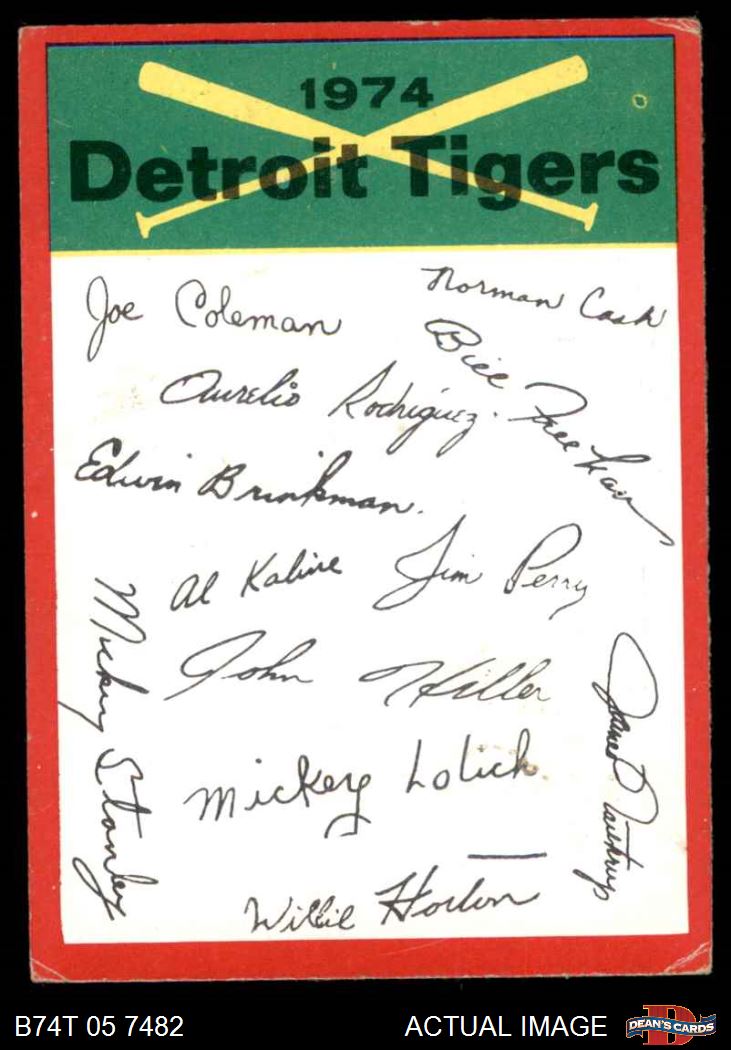 1974
Detroit Tigers
Joe Coleman
Norman Cash
Aurelio Rodriguez.
Bill Freehan
Edwin Brinkman.
Al Kaline
Jim Perry
John Hiller
Mickey Stanley
James Northrup
Mickey Lolich
Willie Horton
B74T 05 7482
ACTUAL IMAGE
D
DEAN'S CARDS